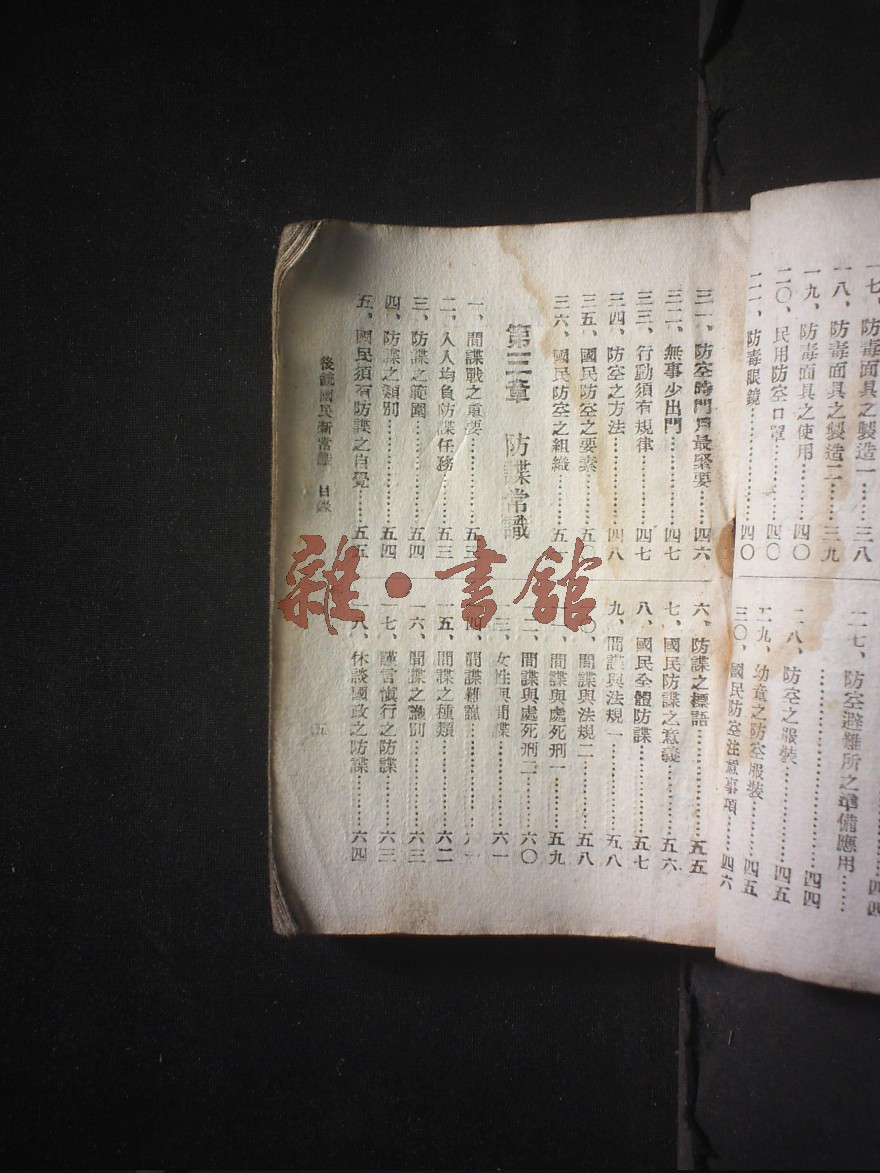 一七、防毒面具之製造一……三八
一八、防毒面具之製造二……三九
一九、防毒面具之使用……四〇
二〇、民用防空口罩……四〇
防毒眼鏡……四〇
二七、防空避難所之準備應用……
……四四
二八、防空之服裝……四五
二九、幼童之防空服裝……四五
三〇、國民防空注意事項……四六
三一、防空時門戶最緊要……四六
三二、無事少出門……四七
三三、行動須有規律……四七
三四、防空之方法……四八
三五、國民防空之要素……五〇
三六、國民防空之組織……五一
第三章 防諜常識
一、間諜戰之重要……五三
二、人人均負防諜任務……五三
三、防諜之範圍……五四
四、防諜之類別……五四
五、國民須有防諜之自覺……五五
六、防諜之標語……五五
七、國民防諜之意義……五六
八、國民全體防諜……五七
九、間諜與法規一……五八
一〇、間諜與法規二……五八
一一、間諜與處死刑一……五九
一二、間諜與處死刑二……六〇
一三、女性與間諜……六一
一四、間諜雜識
一五、間諜之種類……六二
一六、間諜之識別……六三
一七、謹言慎行之防諜……六三
一八、休談國政之防諜……六四
後織國民新常識 目錄
五
雜·書館